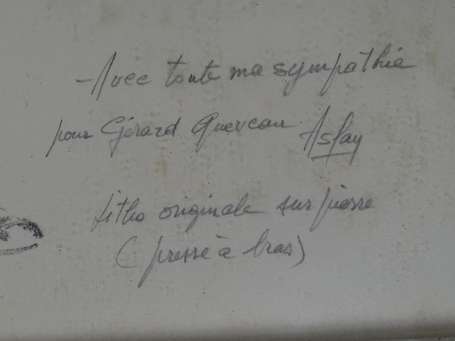 - Avec toute ma sympathie
pour Gérard Queveau Aslay
litho originale sur pierre
(presse à bras)